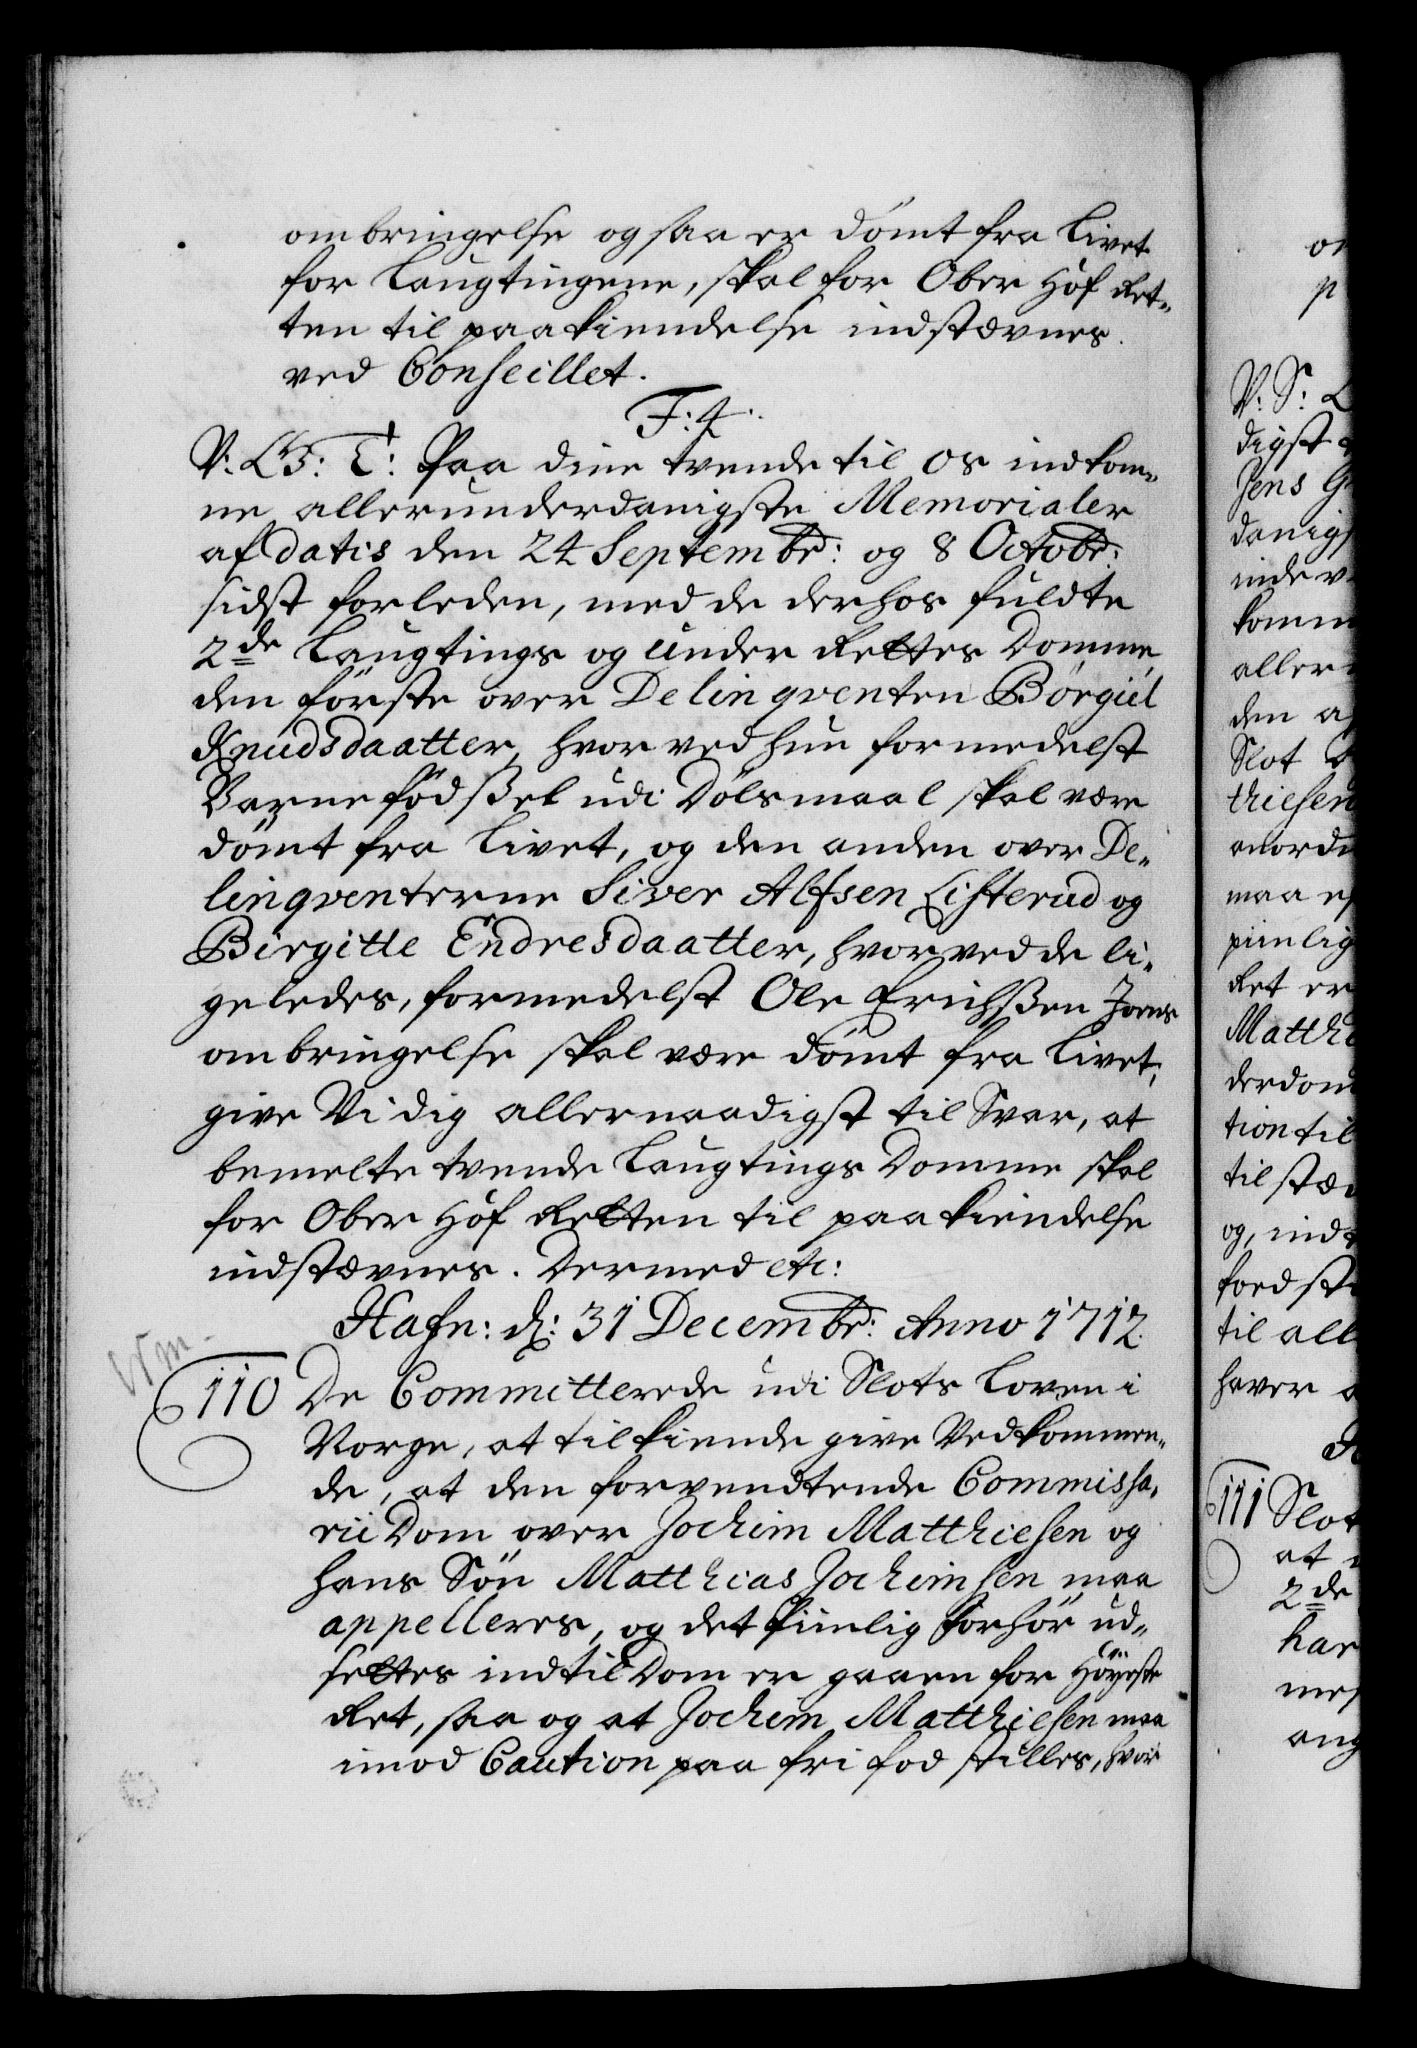 ombringelse ogsaa er dömt fra Livet
for Laugtingene, skal for Ober Hof Ret„
ten til paakiendelse indstævnes.
ved Conseillet.
F: 4.
V: G: T: Paa dine tvende til os indkom„
ne allerunderdanigste Memorialer
af datis den 24 Septembr: og 8 Octobr:
sidst forleden, med de derhos fuldte
2de Laugtings og Under Rettes Domme,
den förste over Delinqventen Börgül
Knudsdaatter, hvorved hun formedelst
Barnefödsel udi Dölsmaal skal være
dömt fra Livet, og den anden over De„
linqventerne Siver Alfsen Listerud og
Birgitte Endresdaatter, hvorved de li„
geledes, formedelst Ole Erichssen
ombringelse skal være dömt fra Livet;
give Vi dig allernaadigst til Svar, at
bemelte tvende Laugtings Domme skal
for Ober Hof Retten til paakiendelse
indstævnes. Dermed etc:
Hafn: d: 31 Decembr: Anno 1712.
110 De Committerede udi Slots Loven i
Norge, at tilkiende give Vedkommen„
de, at den forvendtende Commissa„
rii Dom over Jochim Matthiesen og
hans Sön Matthias Jochimsen maa
appelleres, og det piinlig Forhör ud„
settes indtil Dom er gaaen for Höyeste
Ret, saa og at Jochim Matthiesen maa
imod Caution paa fri fod stilles, hvor
V: S:
digst
Jens
danigs
inde
komm
aller
den
Slot
thiesen
anord
maa
piinlig
Ret er
Matthi
derdom
tion til
til stæ
og, ind
foed st
til all
haver
111 Slot
at
2de
har
mes
ang